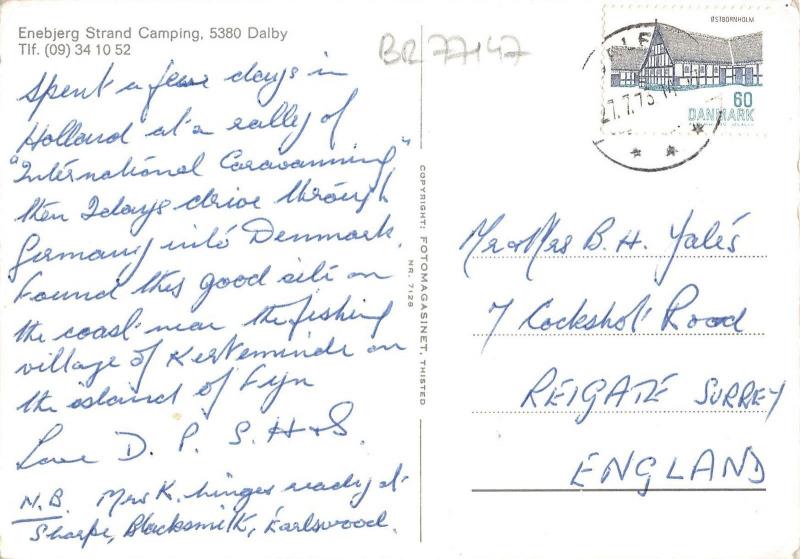 Enebjerg Strand Camping, 5380 Dalby
Tlf. (09) 34 10 52
BR 77147
Spent a few days in
Holland at a rally of
"International Caravanning"
then 2 days drive through
Germany into Denmark.
Found this good site on
the coast near the fishing
village of Kerteminde on
the island of Fyn
Love D. P. S. H & S.
N.B. Mrs K. hinges ready at
Sharpe, Blacksmith, Earlswood.
COPYRIGHT: FOTOMAGASINET, THISTED
NR. 7128
ØSTBORNHOLM
60
DANMARK
27.7.73
Mr & Mrs B. H. Yates
7 Cockshot Road
REIGATE SURREY
ENGLAND